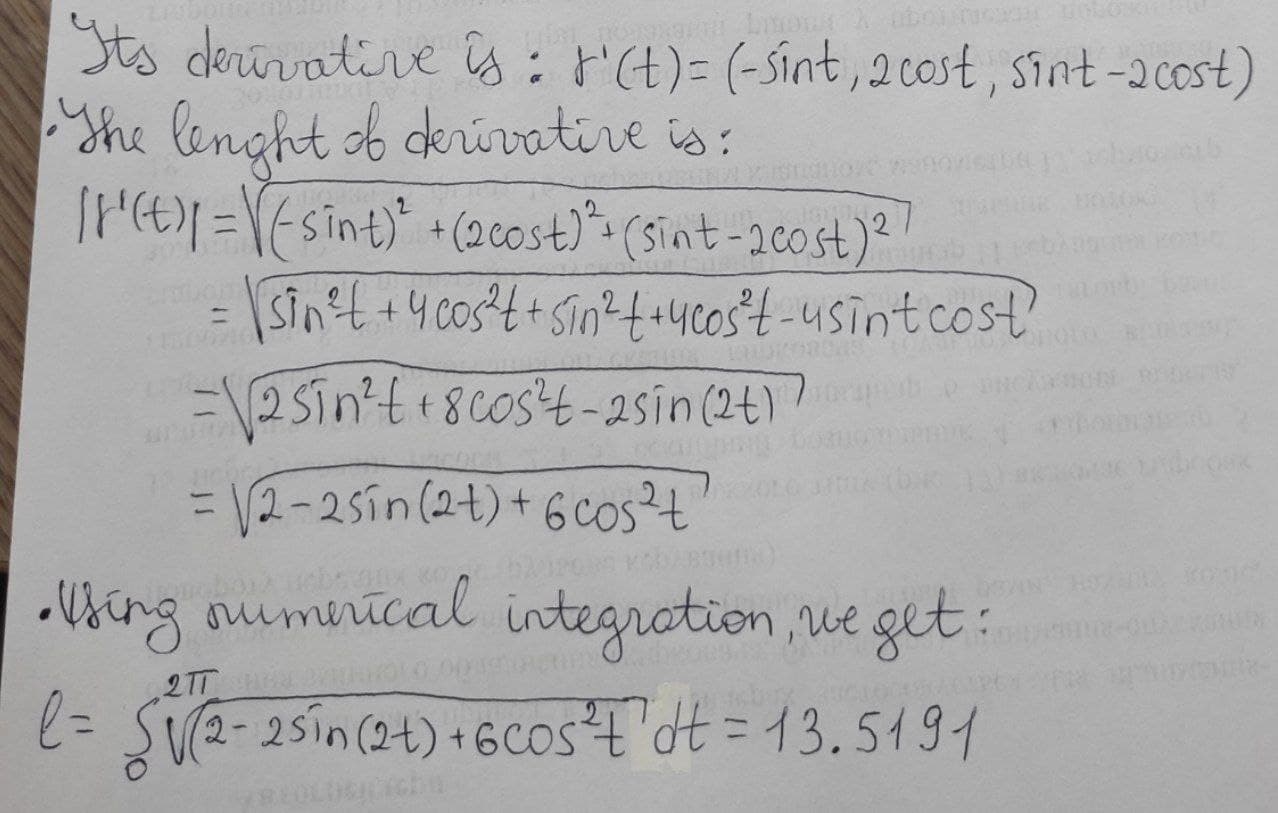 Its derivative is : r'(t) = (-sint, 2cost, sint - 2cost)
• The lenght of derivative is :
|r'(t)| = √((-sint)² + (2cost)² + (sint - 2cost)²)
= √(sin²t + 4cos²t + sin²t + 4cos²t - 4sintcost)
= √(2sin²t + 8cos²t - 2sin(2t))
= √(2 - 2sin(2t) + 6cos²t)
• Using numerical integration, we get :
l = ∫₀^2π √(2 - 2sin(2t) + 6cos²t) dt = 13.5191